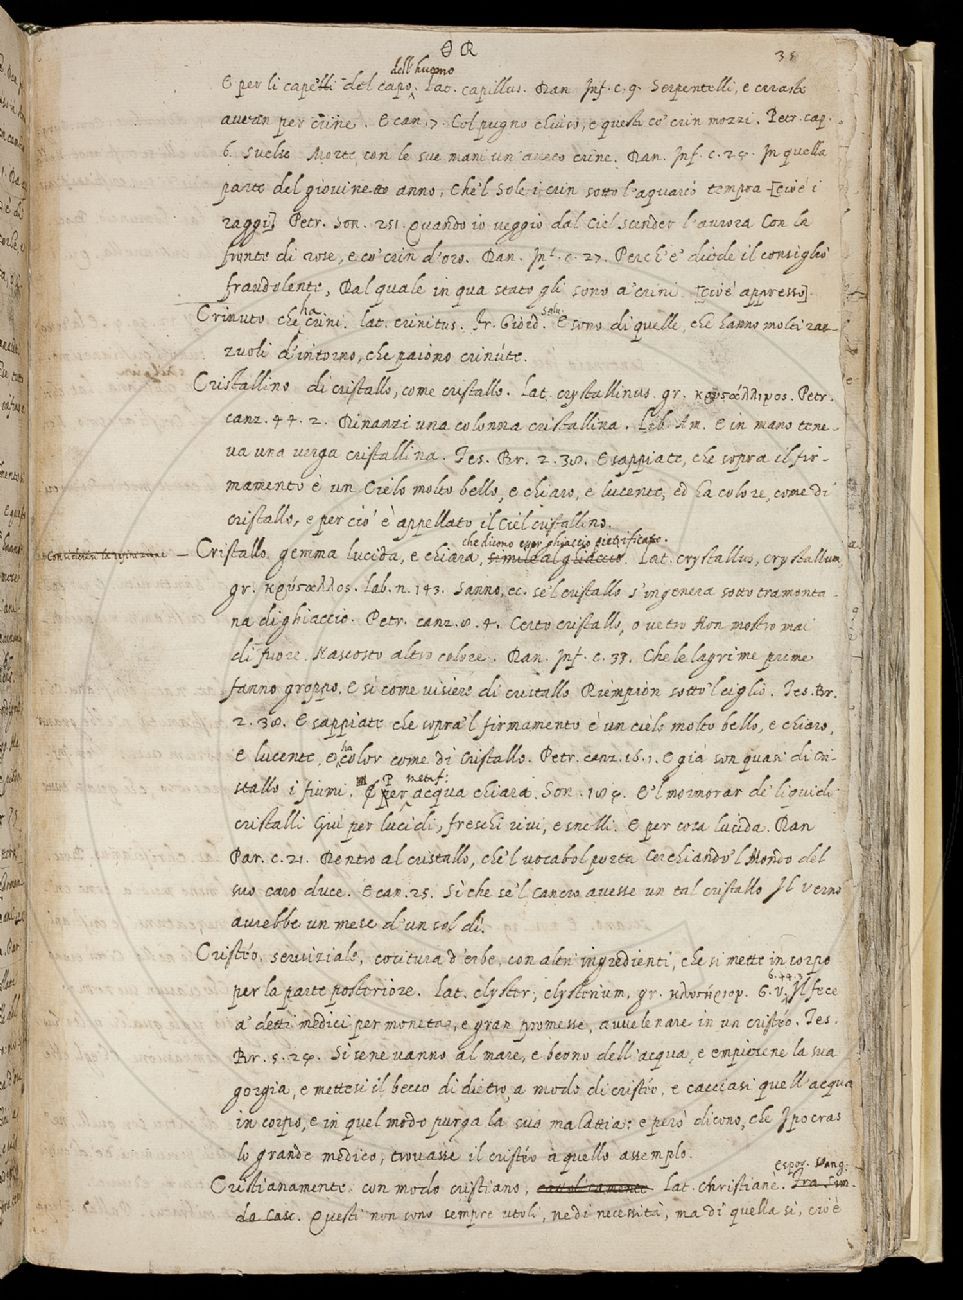 C R
38
dell'huomo
E per li capelli del capo. Lat. capillus. Dan. Inf. c. 9. Serpentelli, e ceraste
avean per crine. E can. 7. Col pugno chiuso, e questi co' crin mozzi. Petr. cap.
6. Svelse Morte con le sue mani un aureo crine. Dan. Inf. c. 24. In quella
parte del giovinetto anno, Che'l Sole i crin sotto l'aquario tempra [cioè i
raggi] Petr. Son. 251. Quando io veggio dal Ciel scender l'aurora Con la
fronte di rose, e co' crin d'oro. Dan. Inf. c. 27. Perch'e' diede il consiglio
fraudolente, Dal quale in qua stato gli sono a' crini. [cioè appresso].
Crinuto che ha crini. lat. crinitus. Fr. Giord. Salu. E sono di quelle, che hanno molti raz-
zuoli d'intorno, che paiono crinute.
Cristallino di cristallo, come cristallo. Lat. crystallinus. gr. κρυστάλλινος. Petr.
canz. 44. 2. Dinanzi una colonna cristallina. Lib. Am. E in mano tene-
va una verga cristallina. Tes. Br. 2. 38. E sappiate, che sopra il fir-
mamento è un Cielo molto bello, e chiaro, e lucente, ed ha colore, come di
cristallo, e per ciò è appellato il Ciel cristallino.
che dicono esser ghiaccio pietrificato.
Cristallo gemma lucida, e chiara, simile al ghiaccio. Lat. crystallus, crystallum,
gr. κρύσταλλος. Lab. n. 143. Sanno, ec. se'l cristallo s'ingenera sotto tramonta-
na di ghiaccio. Petr. canz. 8. 4. Certo cristallo, o vetro Non mostrò mai
di fuore. Nascosto altro colore. Dan. Inf. c. 33. Che le lagrime prime
fanno groppo, E sì come visiere di cristallo Riempion sotto'l ciglio. Tes. Br.
2. 38. E sappiate che sopra'l firmamento è un cielo molto bello, e chiaro,
e lucente, e ha color come di Cristallo. Petr. canz. 16. 1. E già son quasi di cri-
stallo i fiumi. ¶ P metaf: per acqua chiara. Son. 185. E'l mormorar de' liquidi
cristalli Giù per lucidi, freschi rivi, e snelli. E per cosa lucida. Dan
Par. c. 21. Dentro al cristallo, che'l vocabol porta Cerchiando'l Mondo del
suo caro duce. E can. 25. Sì che se'l Cancro avesse un tal cristallo Il verno
avrebbe un mese d'un sol dì.
Cristéo, serviziale, cocitura d'erbe, con altri ingredienti, che si mette in corpo
per la parte posteriore. Lat. clyster, clysterium, gr. κλυστήριον. G. V. Il fece
a' detti medici per moneta, e gran promesse, avvelenare in un cristéo. Tes.
Br. 5. 24. Si sene vanno al mare, e beono dell'acqua, e empiesene la sua
gorgia, e mettesi il becco di dietro, a modo di cristéo, e cacciasi quell'acqua
in corpo, e in quel modo purga la sua malattia: e però dicono, che Ipocras
lo grande medico, trovasse il cristéo a quello assemplo.
Espos. Vang.
Cristianamente con modo cristiano, cattolicamente Lat. christianè. Fra Sim.
da Casc. Questi non sono sempre utoli, ne di necessità, ma di quella sì, cioè